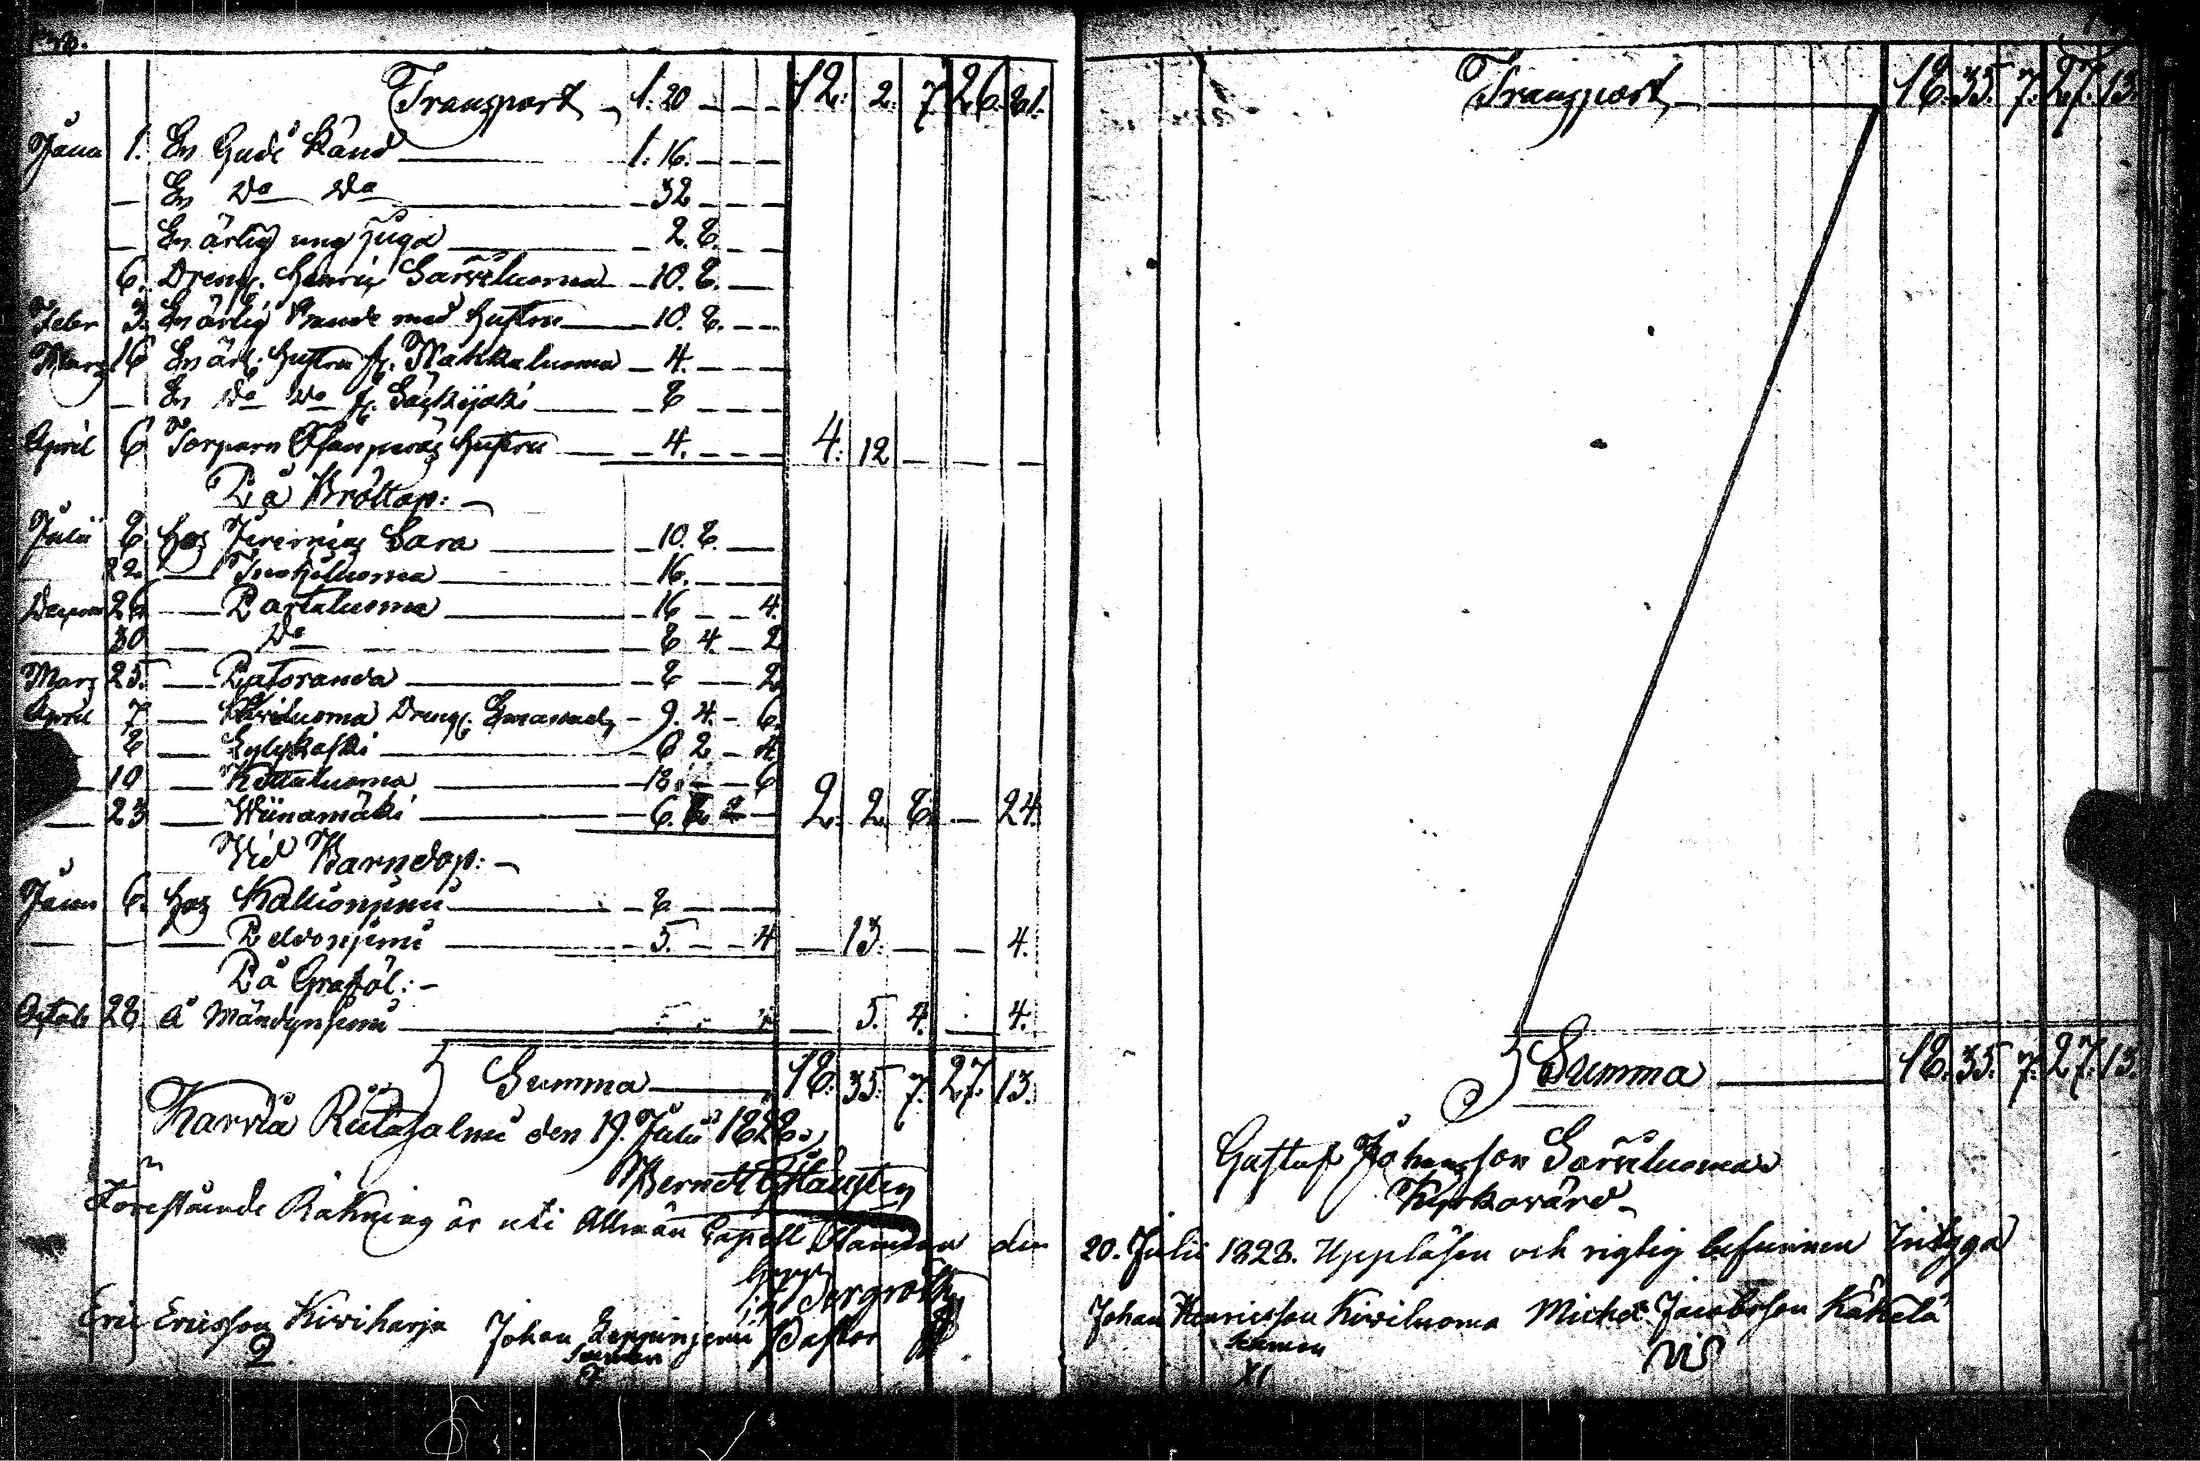 Transport 1. 20 - - - 12. 2. 7. 26. 21.
Janu 1. En Gudi Känd 1. 16. - - -
- En Do Do 32 - - -
- En ärlig ung Piga 2. 8. - -
6. Dreng. Henric Sarviluoma 10. 8. - -
Febr 3. En ärlig Bonde med Hustru 10. 8. - -
Marz 16 En ärl. Hustru fr. Nahkaluoma 4. - - -
- En Do Do fr. 8 - - -
April 6 Torparn Hustru 4. - - - 4. 12 - - -
På Bröllop: -
Julii 8. Hos Jeremias Sara 10. 8. - -
22. - 16. - - -
26 - Partaluoma 16 - - 4.
30 - Do 8 4. - 2
Marz 25. - Patoranda 8 - - 2.
April 7 - Kiviluoma Dreng. Emanuel 9. 4. - 6.
8 - Kylykoski 6 2 - 4.
- 10 - Kottiluoma 18. - - 6
- 23 - Wiinamäki 6. 2. 2. 8. - 24.
Vid Barndop: -
Janu 6. Hos Kallionjemi 8 - - -
- - - Peldonjemi 5. - - 4 - 13. - - 4.
På Grafröl: -
Octob 28. Å Mändynjemi - 5. 4. - 4.
Summa 18. 35. 7. 27. 13.
Karvia Ruitasalmi den 19. Julii 1828.
Berndt
Förestående Räkning är uti Allmän Capell Stämma den
Bergroth
Pastor
Eric Ericsson Kiviharja Johan
Transport 18. 35. 7. 27. 13.
Summa 18. 35. 7. 27. 13.
Gustaf Johansson Sarviluoma
Kyrkovärd
20. Julii 1828. Uppläsen och rigtig befunnen Intyga
Johan Henricsson Kiviluoma Michel Jacobsson Käkelä